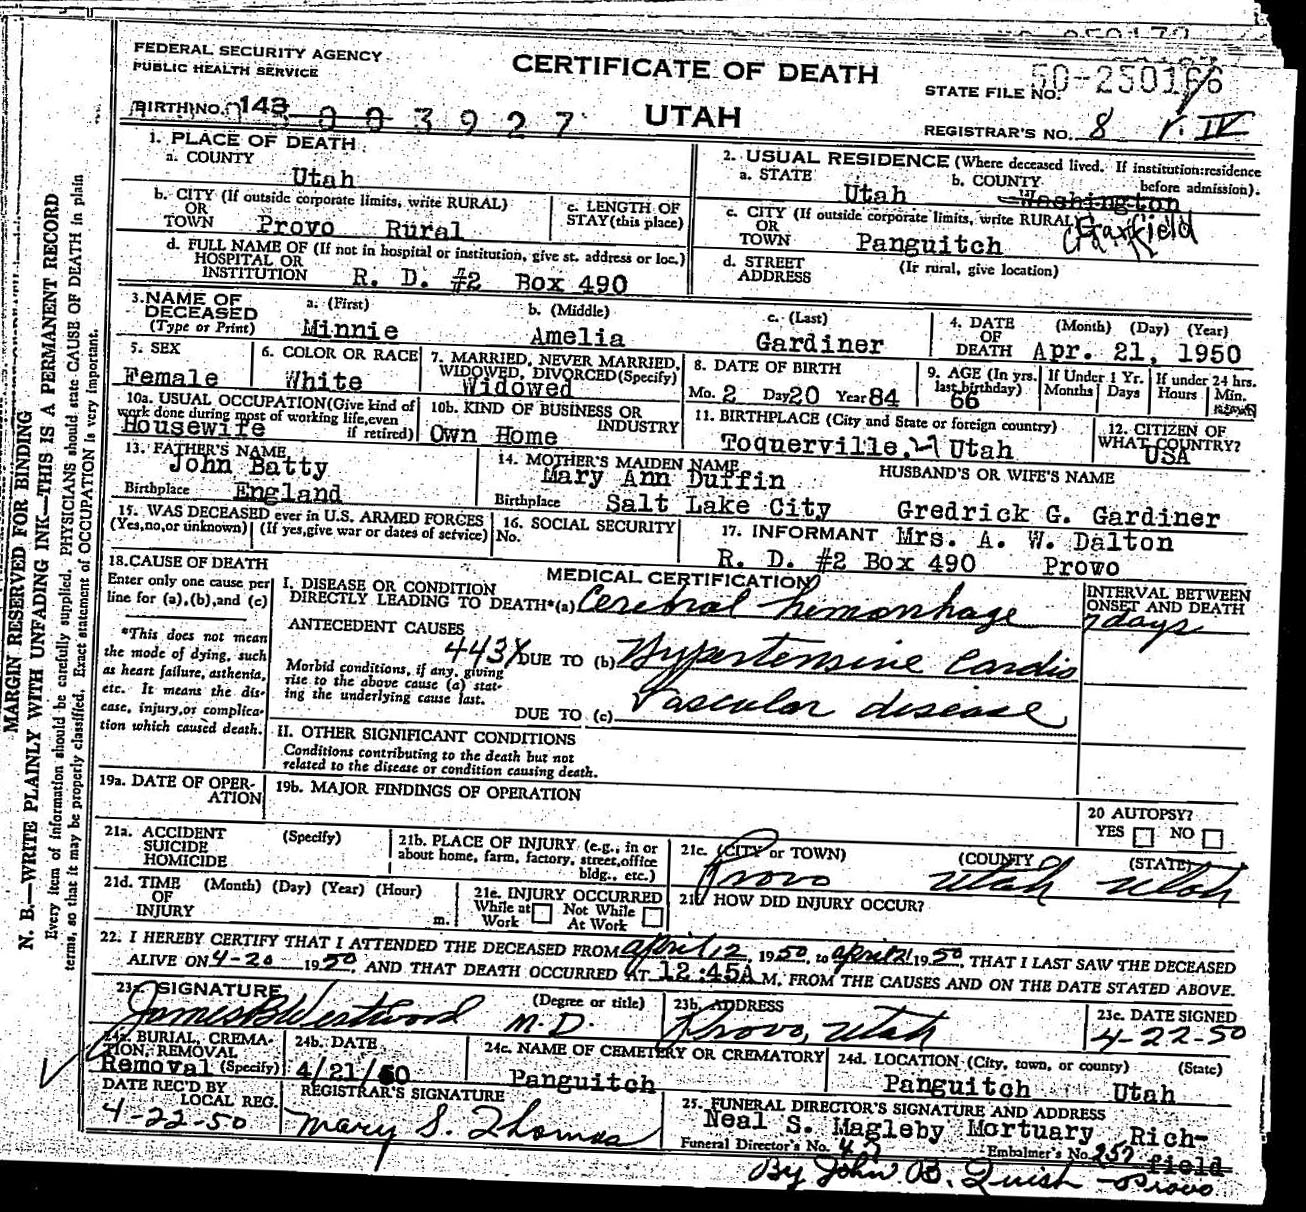 FEDERAL SECURITY AGENCY
PUBLIC HEALTH SERVICE
CERTIFICATE OF DEATH
STATE FILE NO. 50-250166
BIRTH NO. 143 003927
UTAH
REGISTRAR'S NO. 8
1. PLACE OF DEATH
a. COUNTY
Utah
b. CITY (If outside corporate limits, write RURAL)
OR
TOWN Provo Rural
c. LENGTH OF
STAY (this place)
d. FULL NAME OF (If not in hospital or institution, give st. address or loc.)
HOSPITAL OR
INSTITUTION R. D. #2 Box 490
2. USUAL RESIDENCE (Where deceased lived. If institution: residence
before admission).
a. STATE Utah
b. COUNTY Washington
Garfield
c. CITY (If outside corporate limits, write RURAL)
OR
TOWN Panguitch
d. STREET (If rural, give location)
ADDRESS
3. NAME OF
DECEASED
(Type or Print)
a. (First) Minnie
b. (Middle) Amelia
c. (Last) Gardiner
4. DATE (Month) (Day) (Year)
OF
DEATH Apr. 21, 1950
5. SEX
Female
6. COLOR OR RACE
White
7. MARRIED, NEVER MARRIED,
WIDOWED, DIVORCED (Specify)
Widowed
8. DATE OF BIRTH
Mo. 2 Day 20 Year 84
9. AGE (In yrs.
last birthday)
66
If Under 1 Yr.
Months Days
If under 24 hrs.
Hours Min.
10a. USUAL OCCUPATION (Give kind of
work done during most of working life, even
if retired)
Housewife
10b. KIND OF BUSINESS OR
INDUSTRY
Own Home
11. BIRTHPLACE (City and State or foreign country)
Toquerville, Utah
12. CITIZEN OF
WHAT COUNTRY?
USA
13. FATHER'S NAME
John Batty
Birthplace England
14. MOTHER'S MAIDEN NAME
Mary Ann Duffin
Birthplace Salt Lake City
HUSBAND'S OR WIFE'S NAME
Gredrick G. Gardiner
15. WAS DECEASED ever in U.S. ARMED FORCES
(Yes, no, or unknown) (If yes, give war or dates of service)
16. SOCIAL SECURITY
No.
17. INFORMANT Mrs. A. W. Dalton
R. D. #2 Box 490 Provo
18. CAUSE OF DEATH
Enter only one cause per
line for (a), (b), and (c)
*This does not mean
the mode of dying, such
as heart failure, asthenia,
etc. It means the dis-
ease, injury, or complica-
tion which caused death.
MEDICAL CERTIFICATION
I. DISEASE OR CONDITION
DIRECTLY LEADING TO DEATH* (a) Cerebral hemorrhage
INTERVAL BETWEEN
ONSET AND DEATH
7 days
ANTECEDENT CAUSES
443X
DUE TO (b) Hypertensive Cardio
Morbid conditions, if any, giving
rise to the above cause (a) stat-
ing the underlying cause last.
Vascular disease
DUE TO (c)
II. OTHER SIGNIFICANT CONDITIONS
Conditions contributing to the death but not
related to the disease or condition causing death.
19a. DATE OF OPER-
ATION
19b. MAJOR FINDINGS OF OPERATION
20 AUTOPSY?
YES NO
21a. ACCIDENT (Specify)
SUICIDE
HOMICIDE
21b. PLACE OF INJURY (e.g., in or
about home, farm, factory, street, office
bldg., etc.)
21c. (CITY or TOWN) (COUNTY) (STATE)
Provo Utah Utah
21d. TIME (Month) (Day) (Year) (Hour)
OF
INJURY m.
21e. INJURY OCCURRED
While at Work Not While At Work
21f. HOW DID INJURY OCCUR?
22. I HEREBY CERTIFY THAT I ATTENDED THE DECEASED FROM April 12, 1950, to April 21 1950, THAT I LAST SAW THE DECEASED
ALIVE ON 4-20 1950, AND THAT DEATH OCCURRED AT 12:45A M. FROM THE CAUSES AND ON THE DATE STATED ABOVE.
23a. SIGNATURE (Degree or title)
James B Westwood M.D.
23b. ADDRESS
Provo, Utah
23c. DATE SIGNED
4-22-50
24a. BURIAL, CREMA-
TION, REMOVAL
(Specify)
Removal
24b. DATE
4/21/50
24c. NAME OF CEMETERY OR CREMATORY
Panguitch
24d. LOCATION (City, town, or county) (State)
Panguitch Utah
DATE REC'D BY
LOCAL REG.
4-22-50
REGISTRAR'S SIGNATURE
Mary S. Thomas
25. FUNERAL DIRECTOR'S SIGNATURE AND ADDRESS
Neal S. Magleby Mortuary Rich-
field
Funeral Director's No. Embalmer's No. 257
By John B. Quish - Provo
MARGIN RESERVED FOR BINDING
N. B.—WRITE PLAINLY WITH UNFADING INK—THIS IS A PERMANENT RECORD
Every item of information should be carefully supplied. PHYSICIANS should state CAUSE OF DEATH in plain
terms, so that it may be properly classified. Exact statement of OCCUPATION is very important.